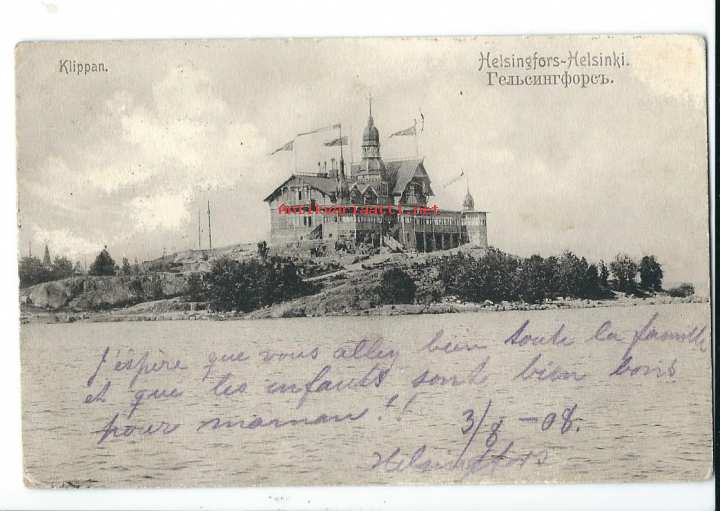 Klippan.
Helsingfors-Helsinki.
Гельсингфорсъ.
antikvariaatti.net
J'éspère que vous allez bien toute la famille
et que tes enfants sont bien bons
pour maman!!
3/8 -08.
Helsingfors